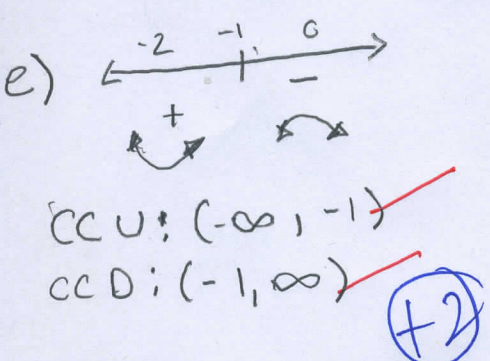 -2 -1 0
e)
+ −
CCU: (-∞, -1)
CCD: (-1, ∞)
+2